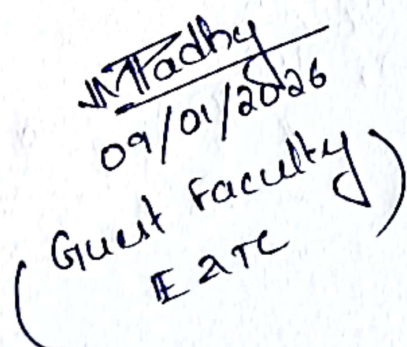 MPadhy
09/01/2026
(Guest Faculty)
E2TC